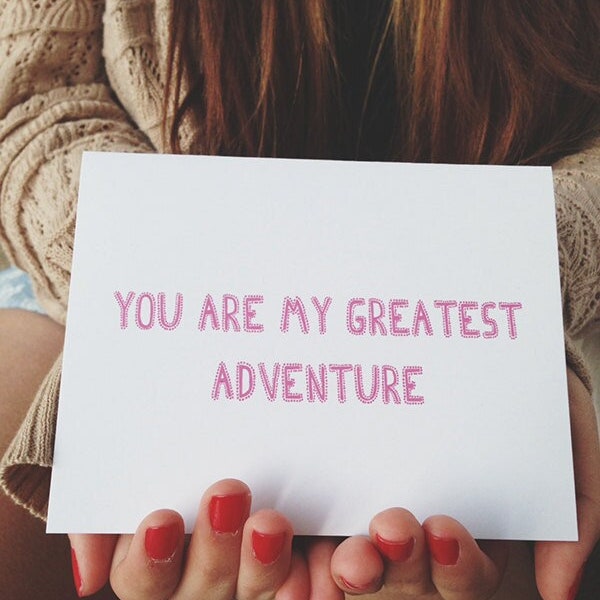 YOU ARE MY GREATEST
ADVENTURE